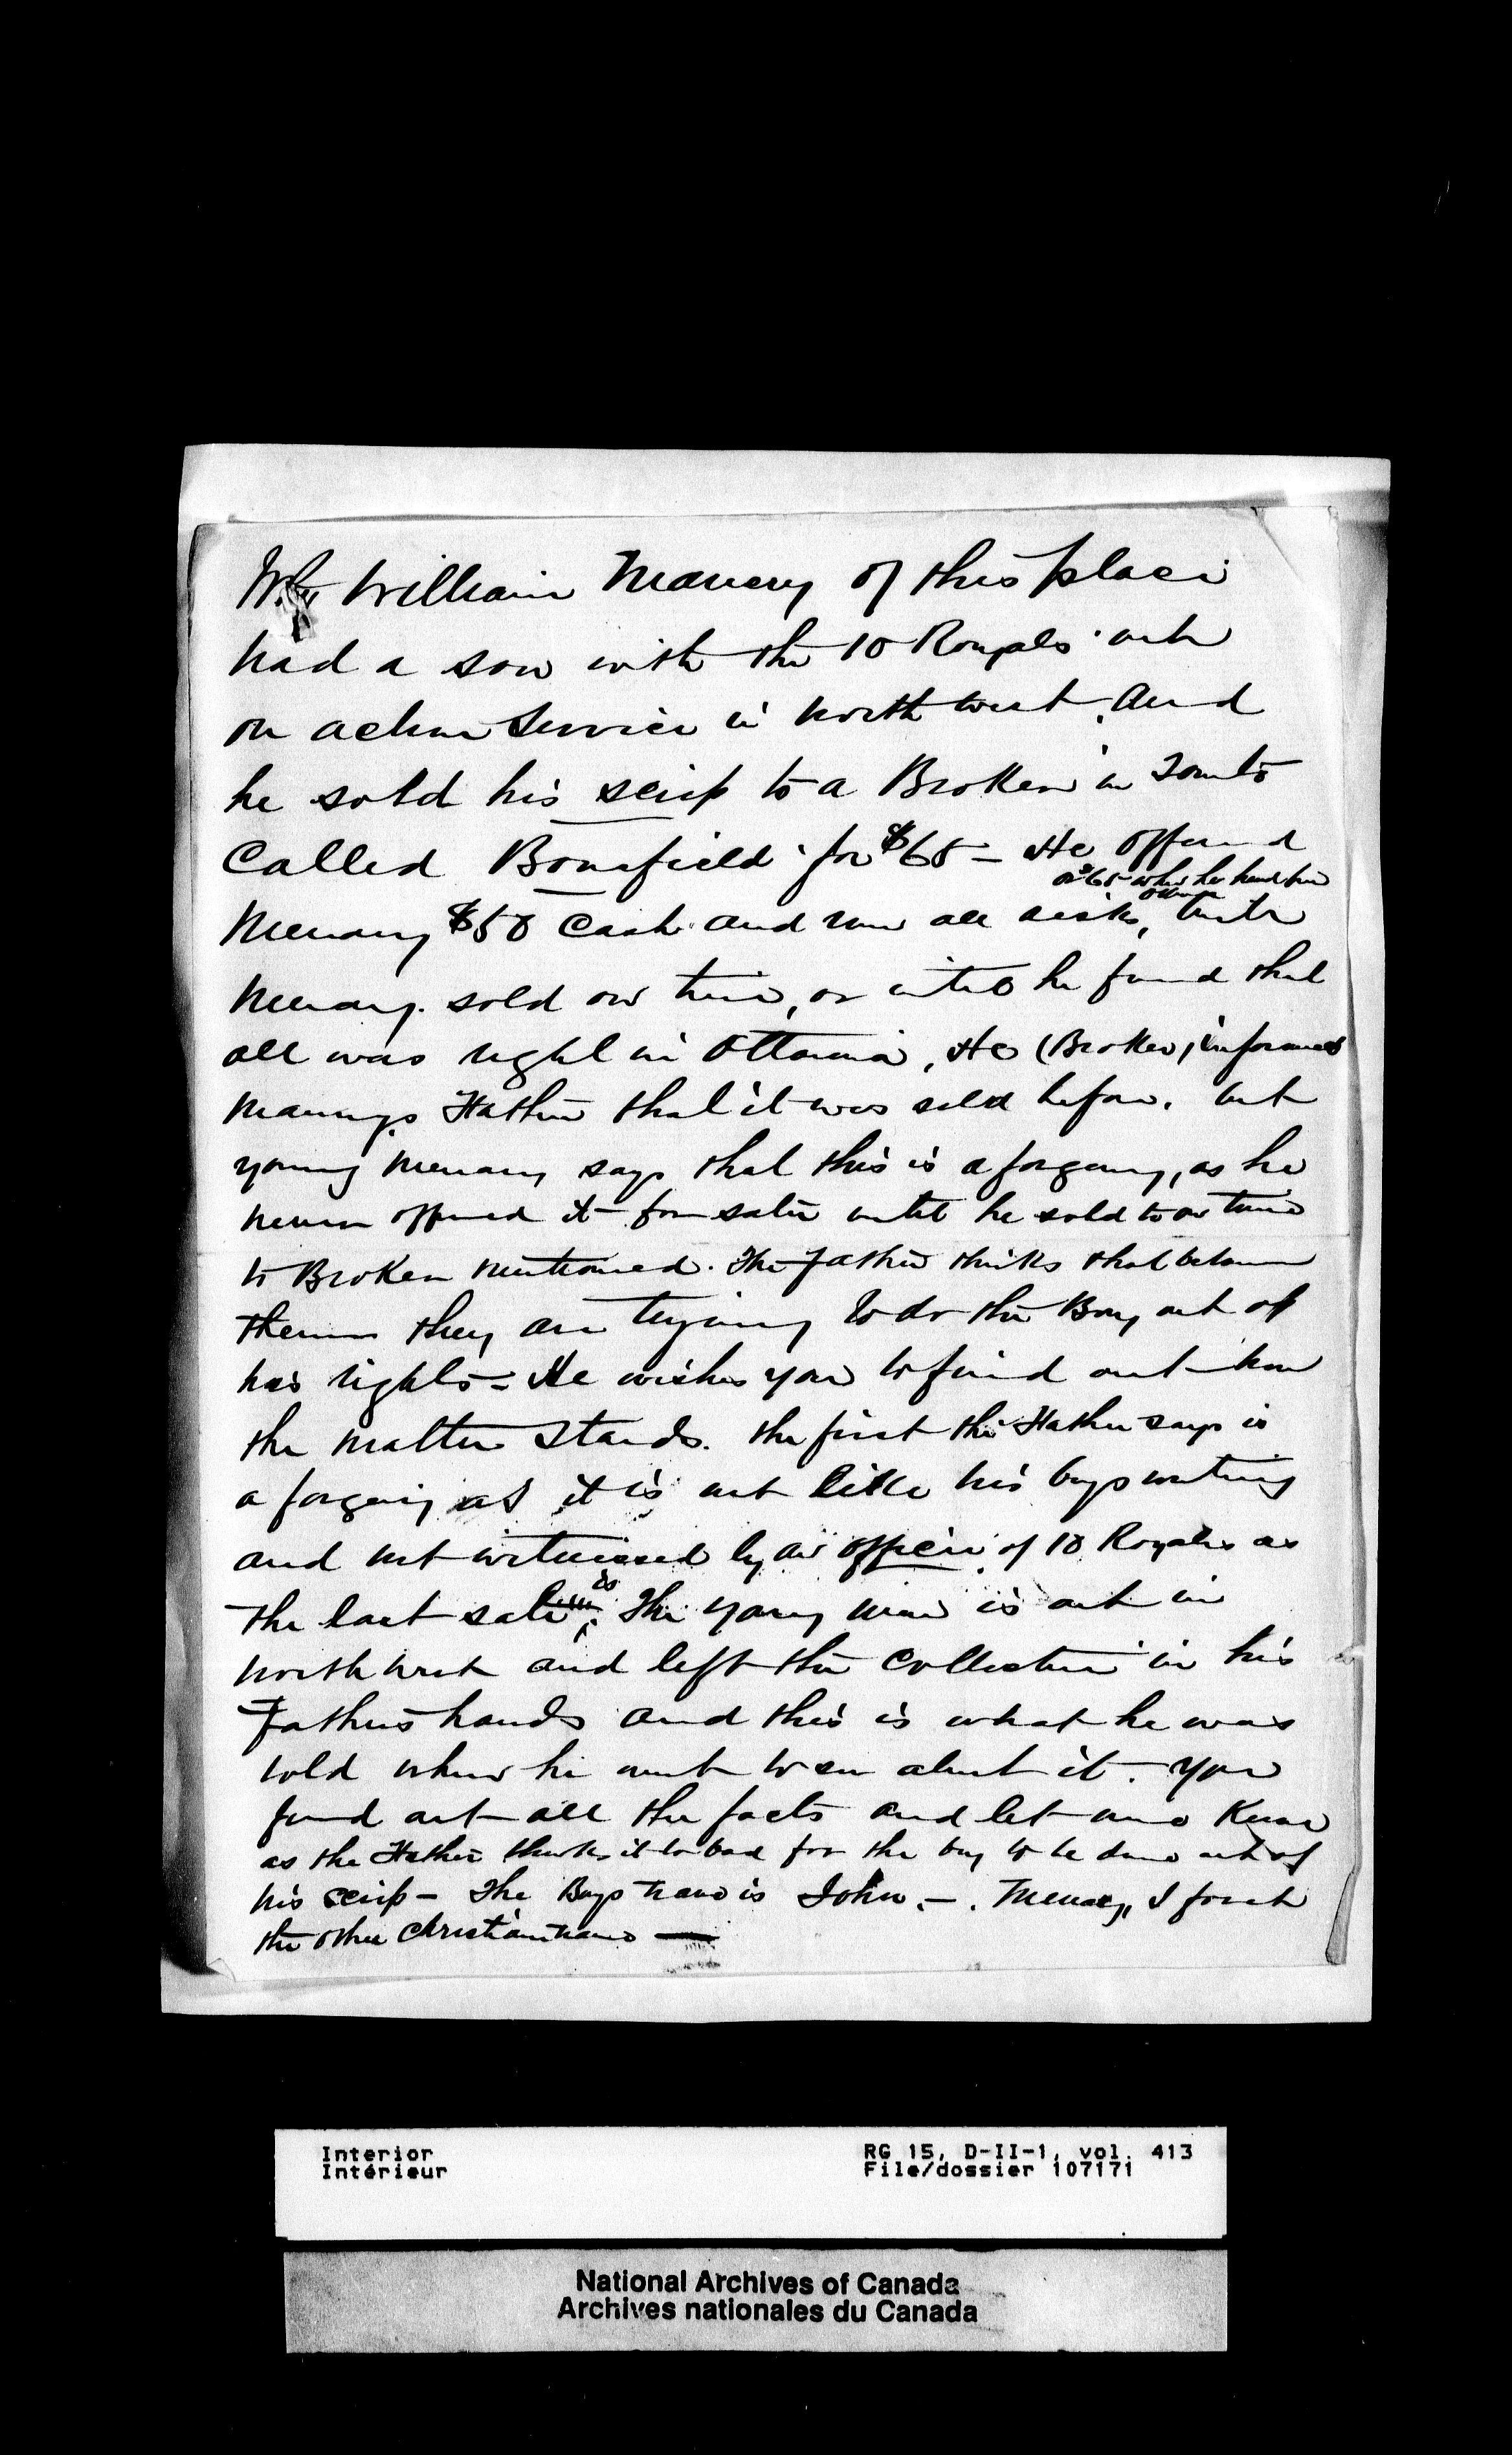 William Menary of this place
had a son with the 10 Royals out
on active Service in North West. and
he sold his scrip to a Broker in Toronto
Called Bonsfield for $65 – He offered
or $65 when he heard from
Ottawa
Menary $50 Cash and run all risks, but
Menary sold on time, or until he found that
all was right in Ottawa, He (Broker) informed
Menarys Father that it was sold before. but
young Menary says that this is a forgery, as he
never offered it for sale until he sold on time
to Broker mentioned. The father thinks that between
them they are trying to do the Boy out of
his rights – He wishes you to find out how
the matter stands. the first the Father says is
a forgery as it is not like his boys writing
and not witnessed by an officer of 10 Royals as
the last sale is The young man is out in
North West and left the Collection in his
Fathers hands and this is what he was
told when he went to see about it. You
find out all the facts and let me Know
as the Father thinks it to bad for the boy to be done out of
his scrip – The Boys name is John. – . Menary, I forget
the other Christian name —
Interior
Intérieur
RG 15, D-II-1, vol. 413
File/dossier 107171
National Archives of Canada
Archives nationales du Canada